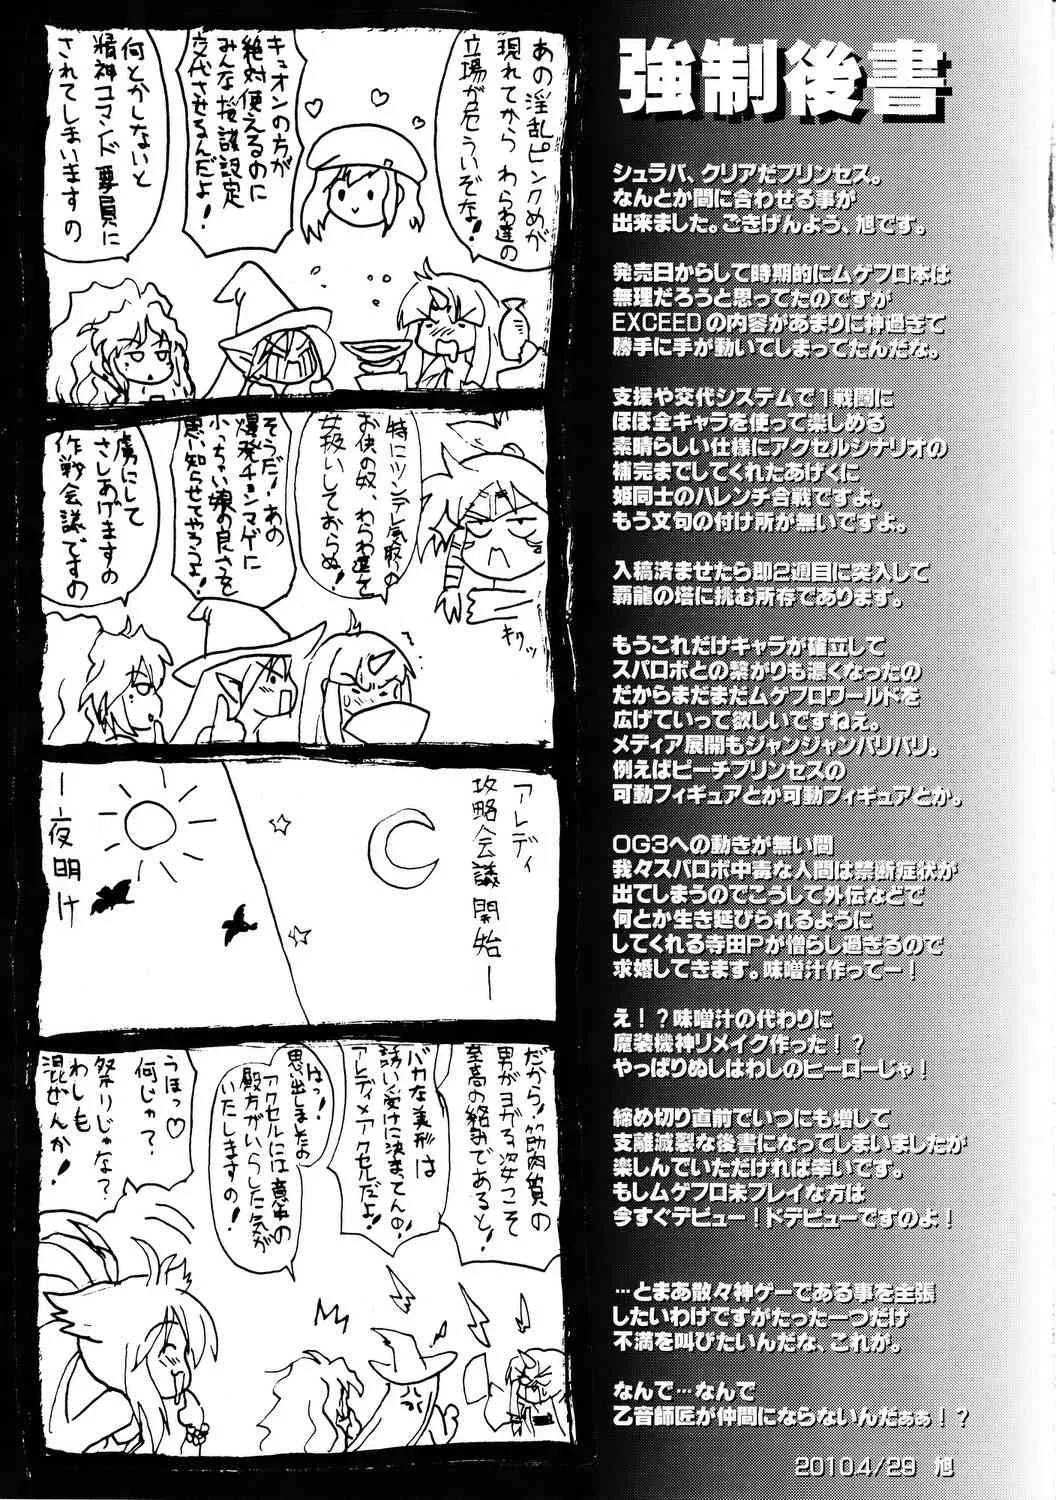 強制後書
シュラバ、クリアだプリンセス。
なんとか間に合わせる事が
出来ました。ごきげんよう、旭です。
発売日からして時期的にムゲフロ本は
無理だろうと思ってたのですが
EXCEEDの内容があまりに神過ぎて
勝手に手が動いてしまってたんだな。
支援や交代システムで1戦闘に
ほぼ全キャラを使って楽しめる
素晴らしい仕様にアクセルシナリオの
補完までしてくれたあげくに
姫同士のハレンチ合戦ですよ。
もう文句の付け所が無いですよ。
入稿済ませたら即2週目に突入して
覇龍の塔に挑む所存であります。
もうこれだけキャラが確立して
スパロボとの繋がりも濃くなったの
だからまだまだムゲフロワールドを
広げていって欲しいですねえ。
メディア展開もジャンジャンバリバリ。
例えばピーチプリンセスの
可動フィギュアとか可動フィギュアとか。
OG3への動きが無い間
我々スパロボ中毒な人間は禁断症状が
出てしまうのでこうして外伝などで
何とか生き延びられるように
してくれる寺田Pが憎らし過ぎるので
求婚してきます。味噌汁作ってー！
え！？味噌汁の代わりに
魔装機神リメイク作った！？
やっぱりぬしはわしのヒーローじゃ！
締め切り直前でいつにも増して
支離滅裂な後書になってしまいましたが
楽しんでいただければ幸いです。
もしムゲフロ未プレイな方は
今すぐデビュー！ドデビューですのよ！
…とまあ散々神ゲーである事を主張
したいわけですがたった一つだけ
不満を叫びたいんだな、これが。
なんで…なんで
乙音師匠が仲間にならないんだぁぁ！？
2010.4/29 旭
あの淫乱ピンクめが
現れてから わらわ達の
立場が危ういぞな！
キュオンの方が
絶対使えるのに
みんな援護設定
交代させるんだよ！
何とかしないと
精神コマンド要員に
されてしまいますの
特にツンデレ気取りの
お侠の奴、わらわ達を
女扱いしておらぬ！
そうだ！あの
爆発チョンマゲに
小っちゃい娘の良さを
思い知らせてやろうよ！
虜にして
さしあげますの
作戦会議ですの
キリッ
アレディ
攻略会議開始ー
ー夜明け
だから！筋肉質の
男がヨガる姿こそ
至高の絡みであると！
バカな美形は
誘い受けに決まってんの！
アレディ×アクセルだよ！
はっ！
思い出しましたよ
アクセルには意中の
殿方がいらした気が
いたしますの！
うほっ♡
何じゃ？
祭りじゃな？
わしも
混ぜんか！